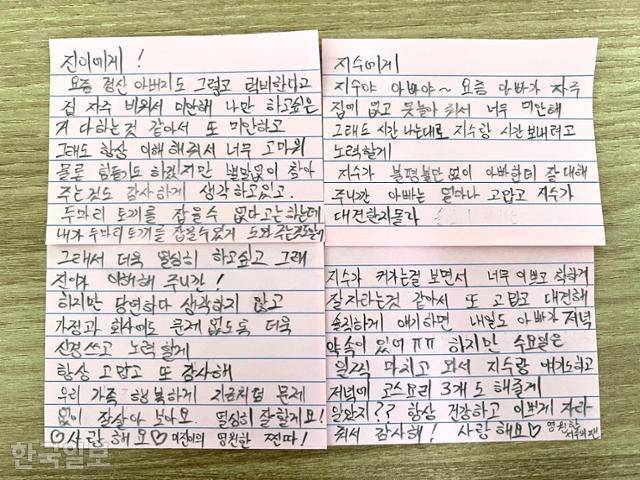 진이에게!
요즘 정신 아버지도 그렇고 럭비한다고
집 자주 비워서 미안해 나만 하고싶은
거 다하는것 같아서 또 미안하고
그래도 항상 이해해줘서 너무 고마워
물론 힘들기도 하겠지만 별말없이 참아
주는것도 감사하게 생각하고있고.
두마리 토끼를 잡을수 없다고는하는데
내가 두마리토끼를 잡을수있게 도와주는것도알기
그래서 더욱 열심히 하고싶고 그래
진이가 이해해 주니깐!
하지만 당연하다 생각하지 않고
가정과 회사에도 문제 없도록 더욱
신경쓰고 노력할게
항상 고맙고 또 감사해
우리 가족 행복하게 지금처럼 문제
없이 잘살아 보아요. 열심히 잘할게요!
♡사랑해요♡ 미진이의 영원한 찐따!
지수에게
지수야 아빠야~ 요즘 아빠가 자주
집에 없고 못놀아 줘서 너무 미안해
그래도 시간 나는대로 지수랑 시간보내려고
노력할게
지수가 불평불만 없이 아빠한테 잘대해
주니깐 아빠는 얼마나 고맙고 지수가
대견한지몰라
지수가 커가는걸 보면서 너무 이쁘고 착하게
잘자라는것 같아서 또 고맙고 대견해
솔직하게 얘기하면 내일도 아빠가 저녁
약속이 있어ㅠㅠ 하지만 수요일은
일찍 마치고 와서 지수랑 얘기도하고
저녁에 코스요리 3개도 해줄게
알았지?? 항상 건강하고 이쁘게 자라
줘서 감사해! 사랑해요♡ 영원한
지수의 팬
한국일보